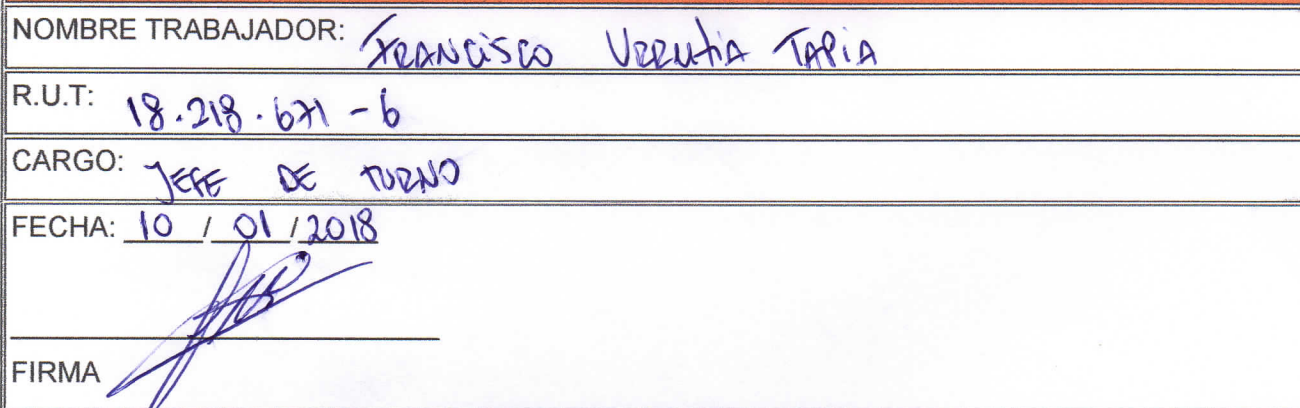 NOMBRE TRABAJADOR: FRANCISCO URRUTIA TAPIA
R.U.T: 18.218.671-6
CARGO: JEFE DE TURNO
FECHA: 10 / 01 / 2018
FIRMA